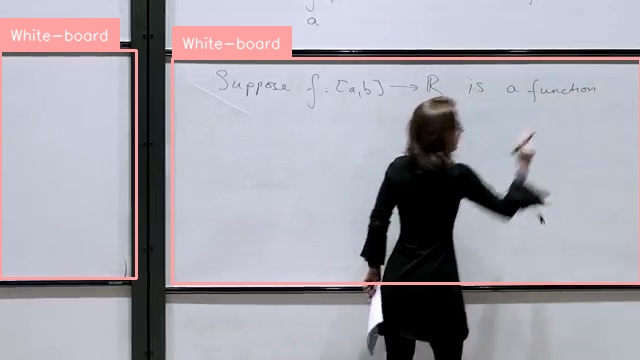 a
White-board
White-board
Suppose f : [a,b] → ℝ is a function